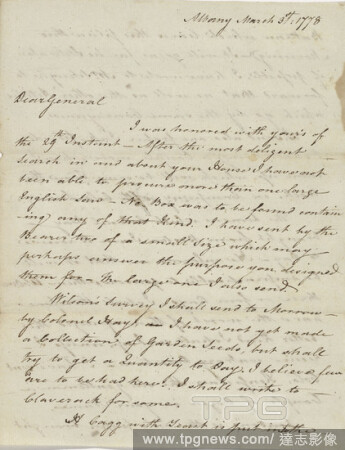 Albany March 3d. 1778
Dear General
I was honored with yours of
the 29th Instant – After the most diligent
Search in and about your House I have not
been able to procure more than one large
English – No Box was to be found contain-
ing any of that Kind. I have sent by the
Bearer two of a small Size which may
perhaps answer the purpose you designed
them for & the large one I also send
Wilson's Survey I shall send to Morrow
by Colonel Hay – I have not yet made
a Collection of Garden Seeds, but shall
try to get a Quantity to Day, I believe few
are to be had here. I shall write to
Claverack for some.
A Cagg with is put into the
TPG
www.tpgnews.com / 達志影像